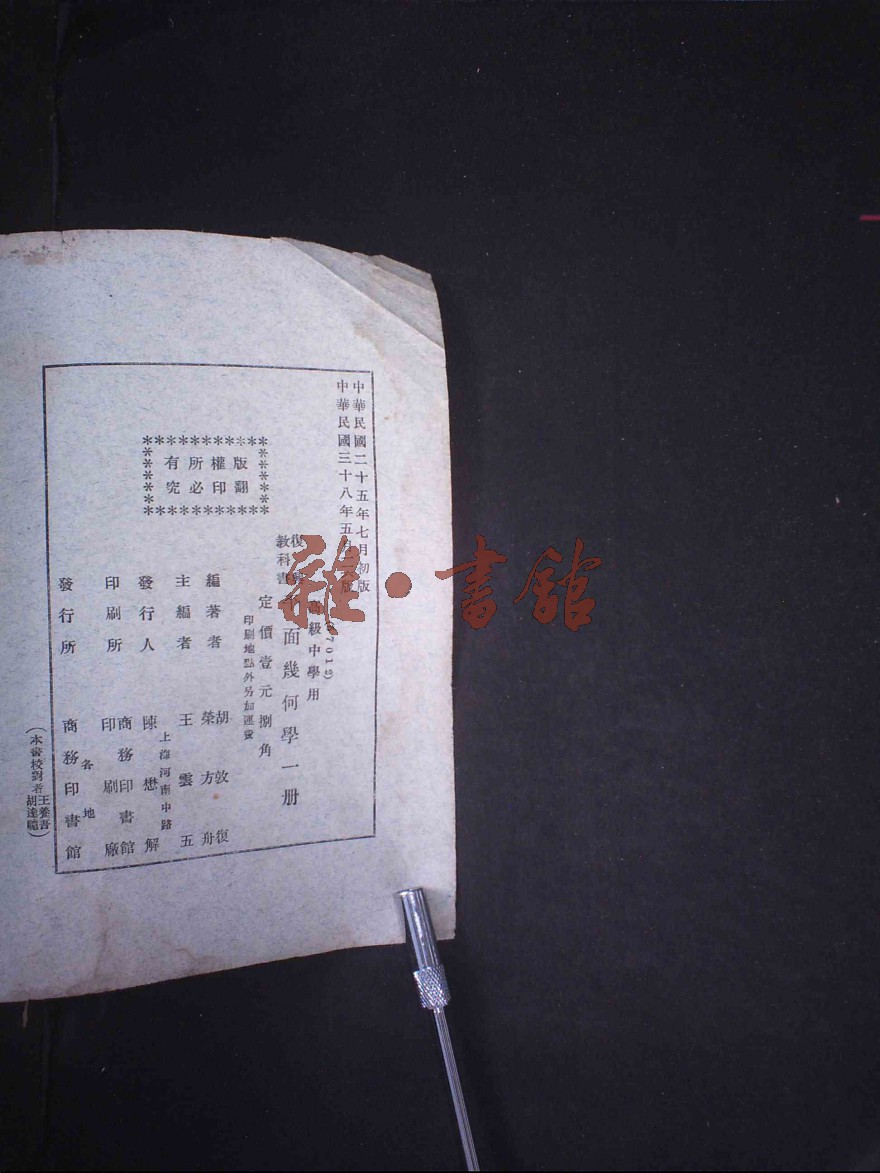 中華民國二十五年七月初版
中華民國三十八年五月 版
版權所有
翻印必究
7012)
高級中學用
復
教科書
平面幾何學一册
定價壹元捌角
印刷地點外另加運費
編著者 胡敦復
榮方舟
主編者 王雲五
發行人 陳懋解
上海河南中路
印刷所 商務印書館
印刷廠
發行所 各地
商務印書館
(本書校對者王養吾
胡達聰)
雜·書館